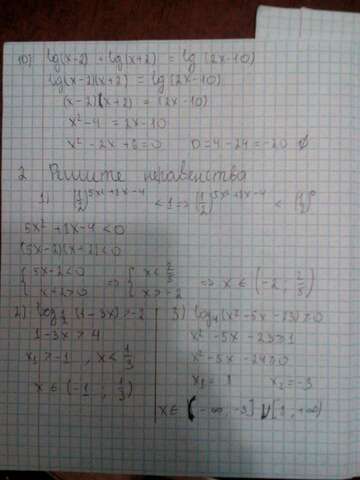 10) lg(x-2) + lg(x+2) = lg(2x-10)
lg(x-2)(x+2) = lg(2x-10)
(x-2)(x+2) = (2x-10)
x² - 4 = 2x-10
x² - 2x + 6 = 0 D = 4 - 24 = -20 ∅
2 Решите неравенства
1) (1/2)^(5x²+8x-4) < 1 => (1/2)^(5x²+8x-4) < (1/2)^0
5x² + 8x - 4 < 0
(5x-2)(x+2) < 0
{ 5x-2 < 0 => { x < 2/5 => x ∈ (-2; 2/5)
{ x+2 > 0 { x > -2
2) (1-3x) > -2
1-3x > 4
x₁ > -1, x < 1/3
x ∈ (-1; 1/3)
3) log₄(x² - 5x - 23) ≥ 0
x² - 5x - 23 ≥ 1
x² - 5x - 24 ≥ 0
x₁ = x₂ = -3
x ∈ (-∞; -3] ∪ [ ; +∞)